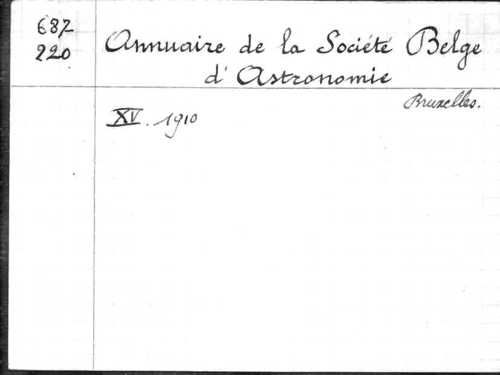 687 Annuaire de la Société Belge
220 d'Astronomie
Bruxelles.
XV. 1910